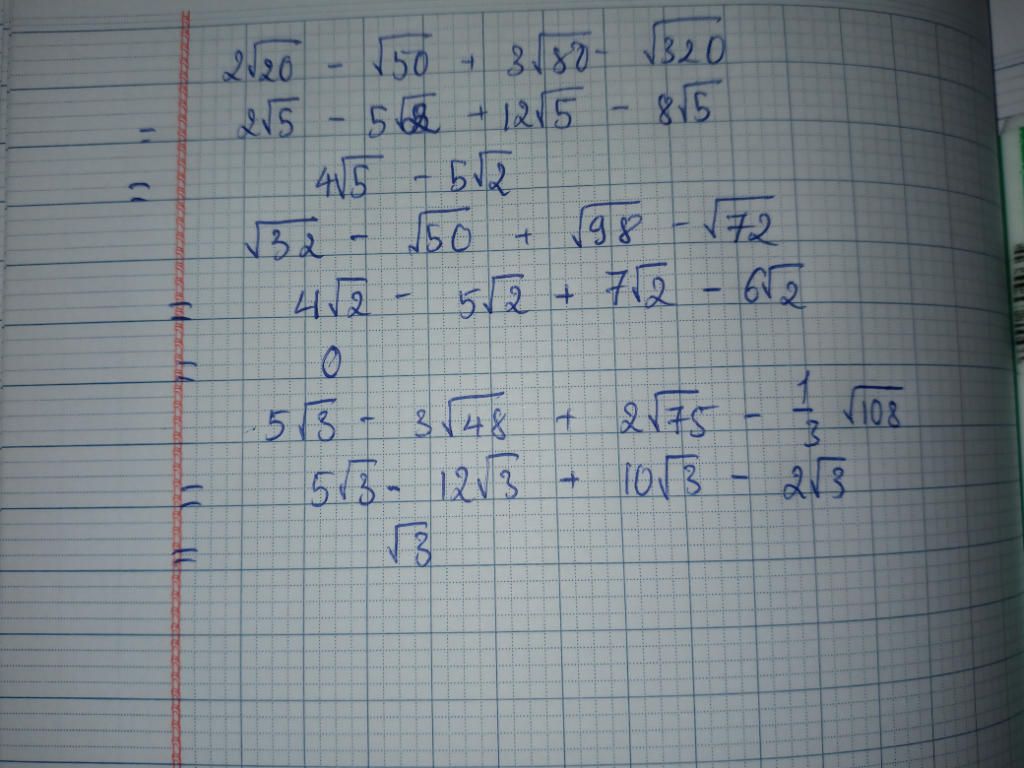 2√20 - √50 + 3√80 - √320
= 2√5 - 5√2 + 12√5 - 8√5
= 4√5 - 5√2
√32 - √50 + √98 - √72
= 4√2 - 5√2 + 7√2 - 6√2
= 0
5√3 - 3√48 + 2√75 - 1/3 √108
= 5√3 - 12√3 + 10√3 - 2√3
= √3